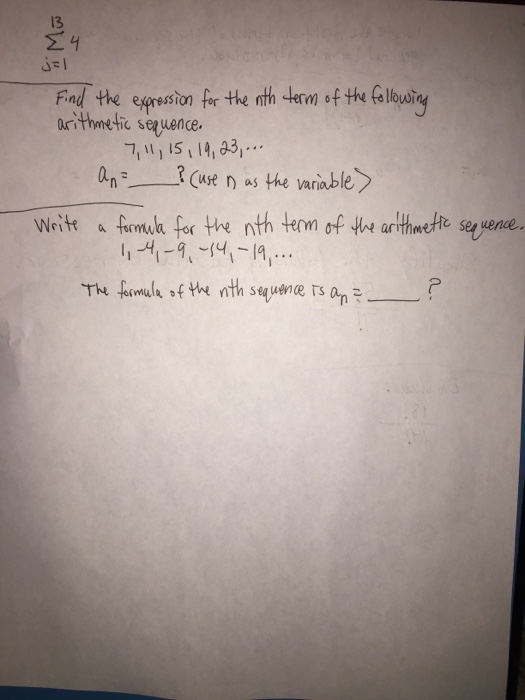 13
Σ 4
j=1
Find the expression for the nth term of the following
arithmetic sequence.
7, 11, 15, 19, 23, ...
an = ____? (use n as the variable)
Write a formula for the nth term of the arithmetic sequence.
1, -4, -9, -14, -19, ...
The formula of the nth sequence is an = ____ ?